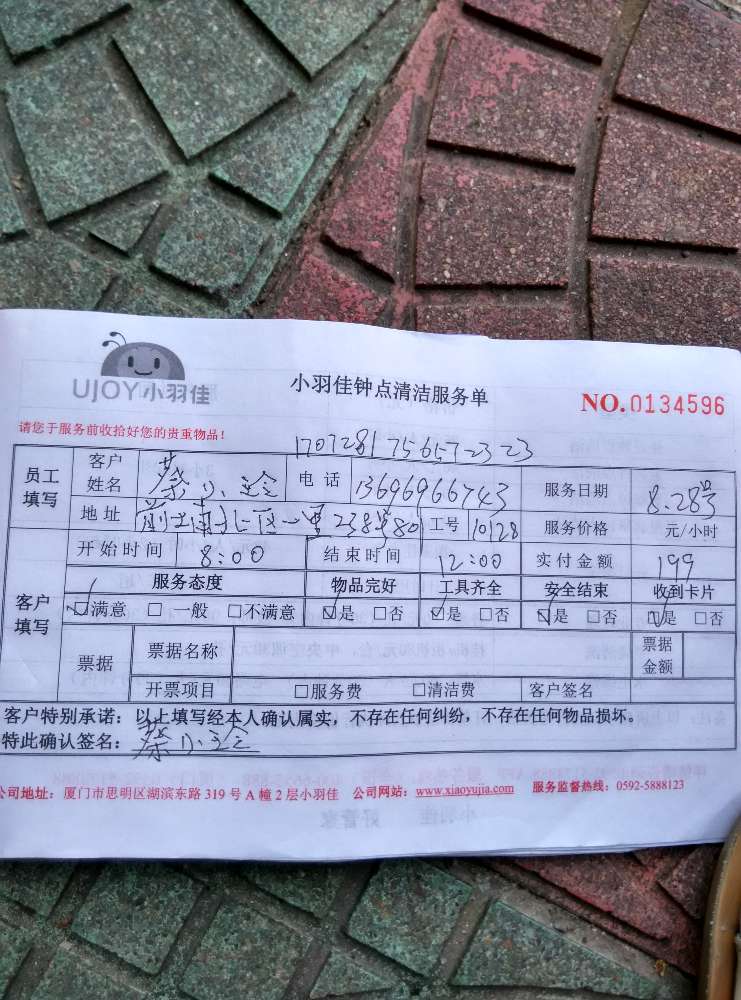 UJOY小羽佳
小羽佳钟点清洁服务单
NO.0134596
请您于服务前收拾好您的贵重物品!
员工填写 客户姓名 蔡小 电话 13696966743 服务日期 8.28号
地址 前埔南区一里238号80 工号 10128 服务价格 元/小时
客户填写 开始时间 8:00 结束时间 12:00 实付金额 199
服务态度 物品完好 工具齐全 安全结束 收到卡片
☑满意 □一般 □不满意 ☑是 □否 ☑是 □否 ☑是 □否 ☑是 □否
票据 票据名称 票据金额
开票项目 □服务费 □清洁费 客户签名
客户特别承诺:以上填写经本人确认属实,不存在任何纠纷,不存在任何物品损坏。
特此确认签名:蔡小
公司地址:厦门市思明区湖滨东路 319 号 A 幢 2 层小羽佳 公司网站:www.xiaoyujia.com 服务监督热线:0592-5888123